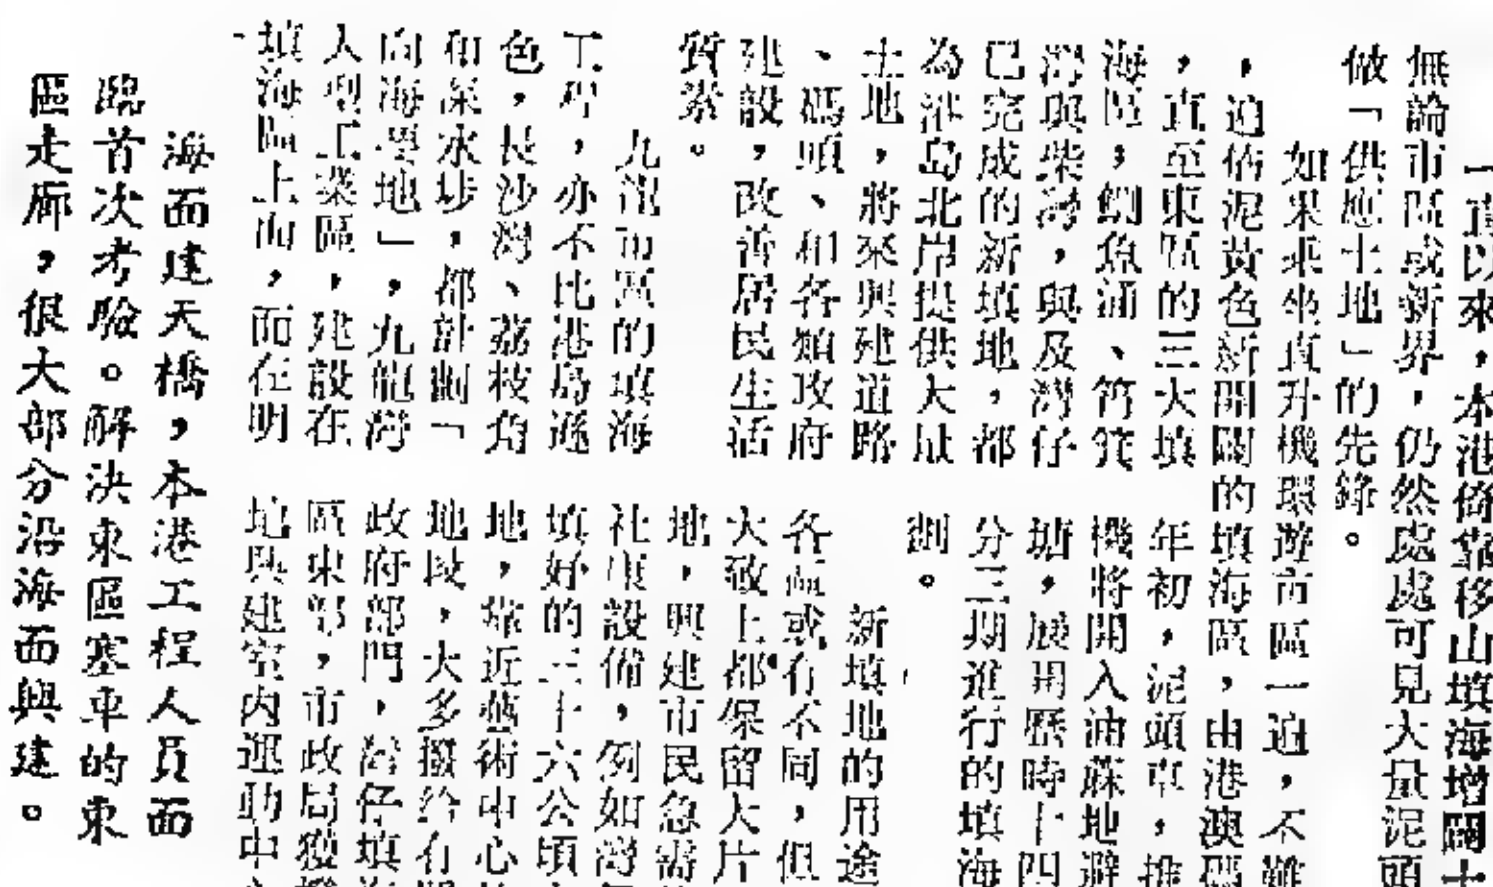 一直以來，本港倚靠移山填海增闢土
無論市區或新界，仍然處處可見大量泥頭
做「供應土地」的先鋒。
如果乘坐直升機環遊市區一迴，不難
，迫佔泥黃色新開闢的填海區，由港澳碼
，直至東區的三大填
海區，鰂魚涌、筲箕
灣與柴灣，與及灣仔
已完成的新填地，都
為港島北岸提供大量
土地，將來興建道路
、碼頭、和各類政府
建設，改善居民生活
質素。
九龍市區的填海
工程，亦不比港島遜
色，長沙灣、荔枝角
和深水埗，都計劃「
向海要地」，九龍灣
大型工業區，建設在
填海區上面，而在明
年初，泥頭車，推
機將開入油蔴地避
塘，展開歷時十四
分三期進行的填海
劃。
新填地的用途
各區或有不同，但
大致上都保留大片
地，興建市民急需
社康設備，例如灣
填好的三十六公頃
地，靠近藝術中心
地段，大多撥給有
政府部門，灣仔填
區東部，市政局獲
地興建室內運動中
海面建天橋，本港工程人員面
臨首次考驗。解決東區塞車的東
區走廊，很大部分沿海面興建。